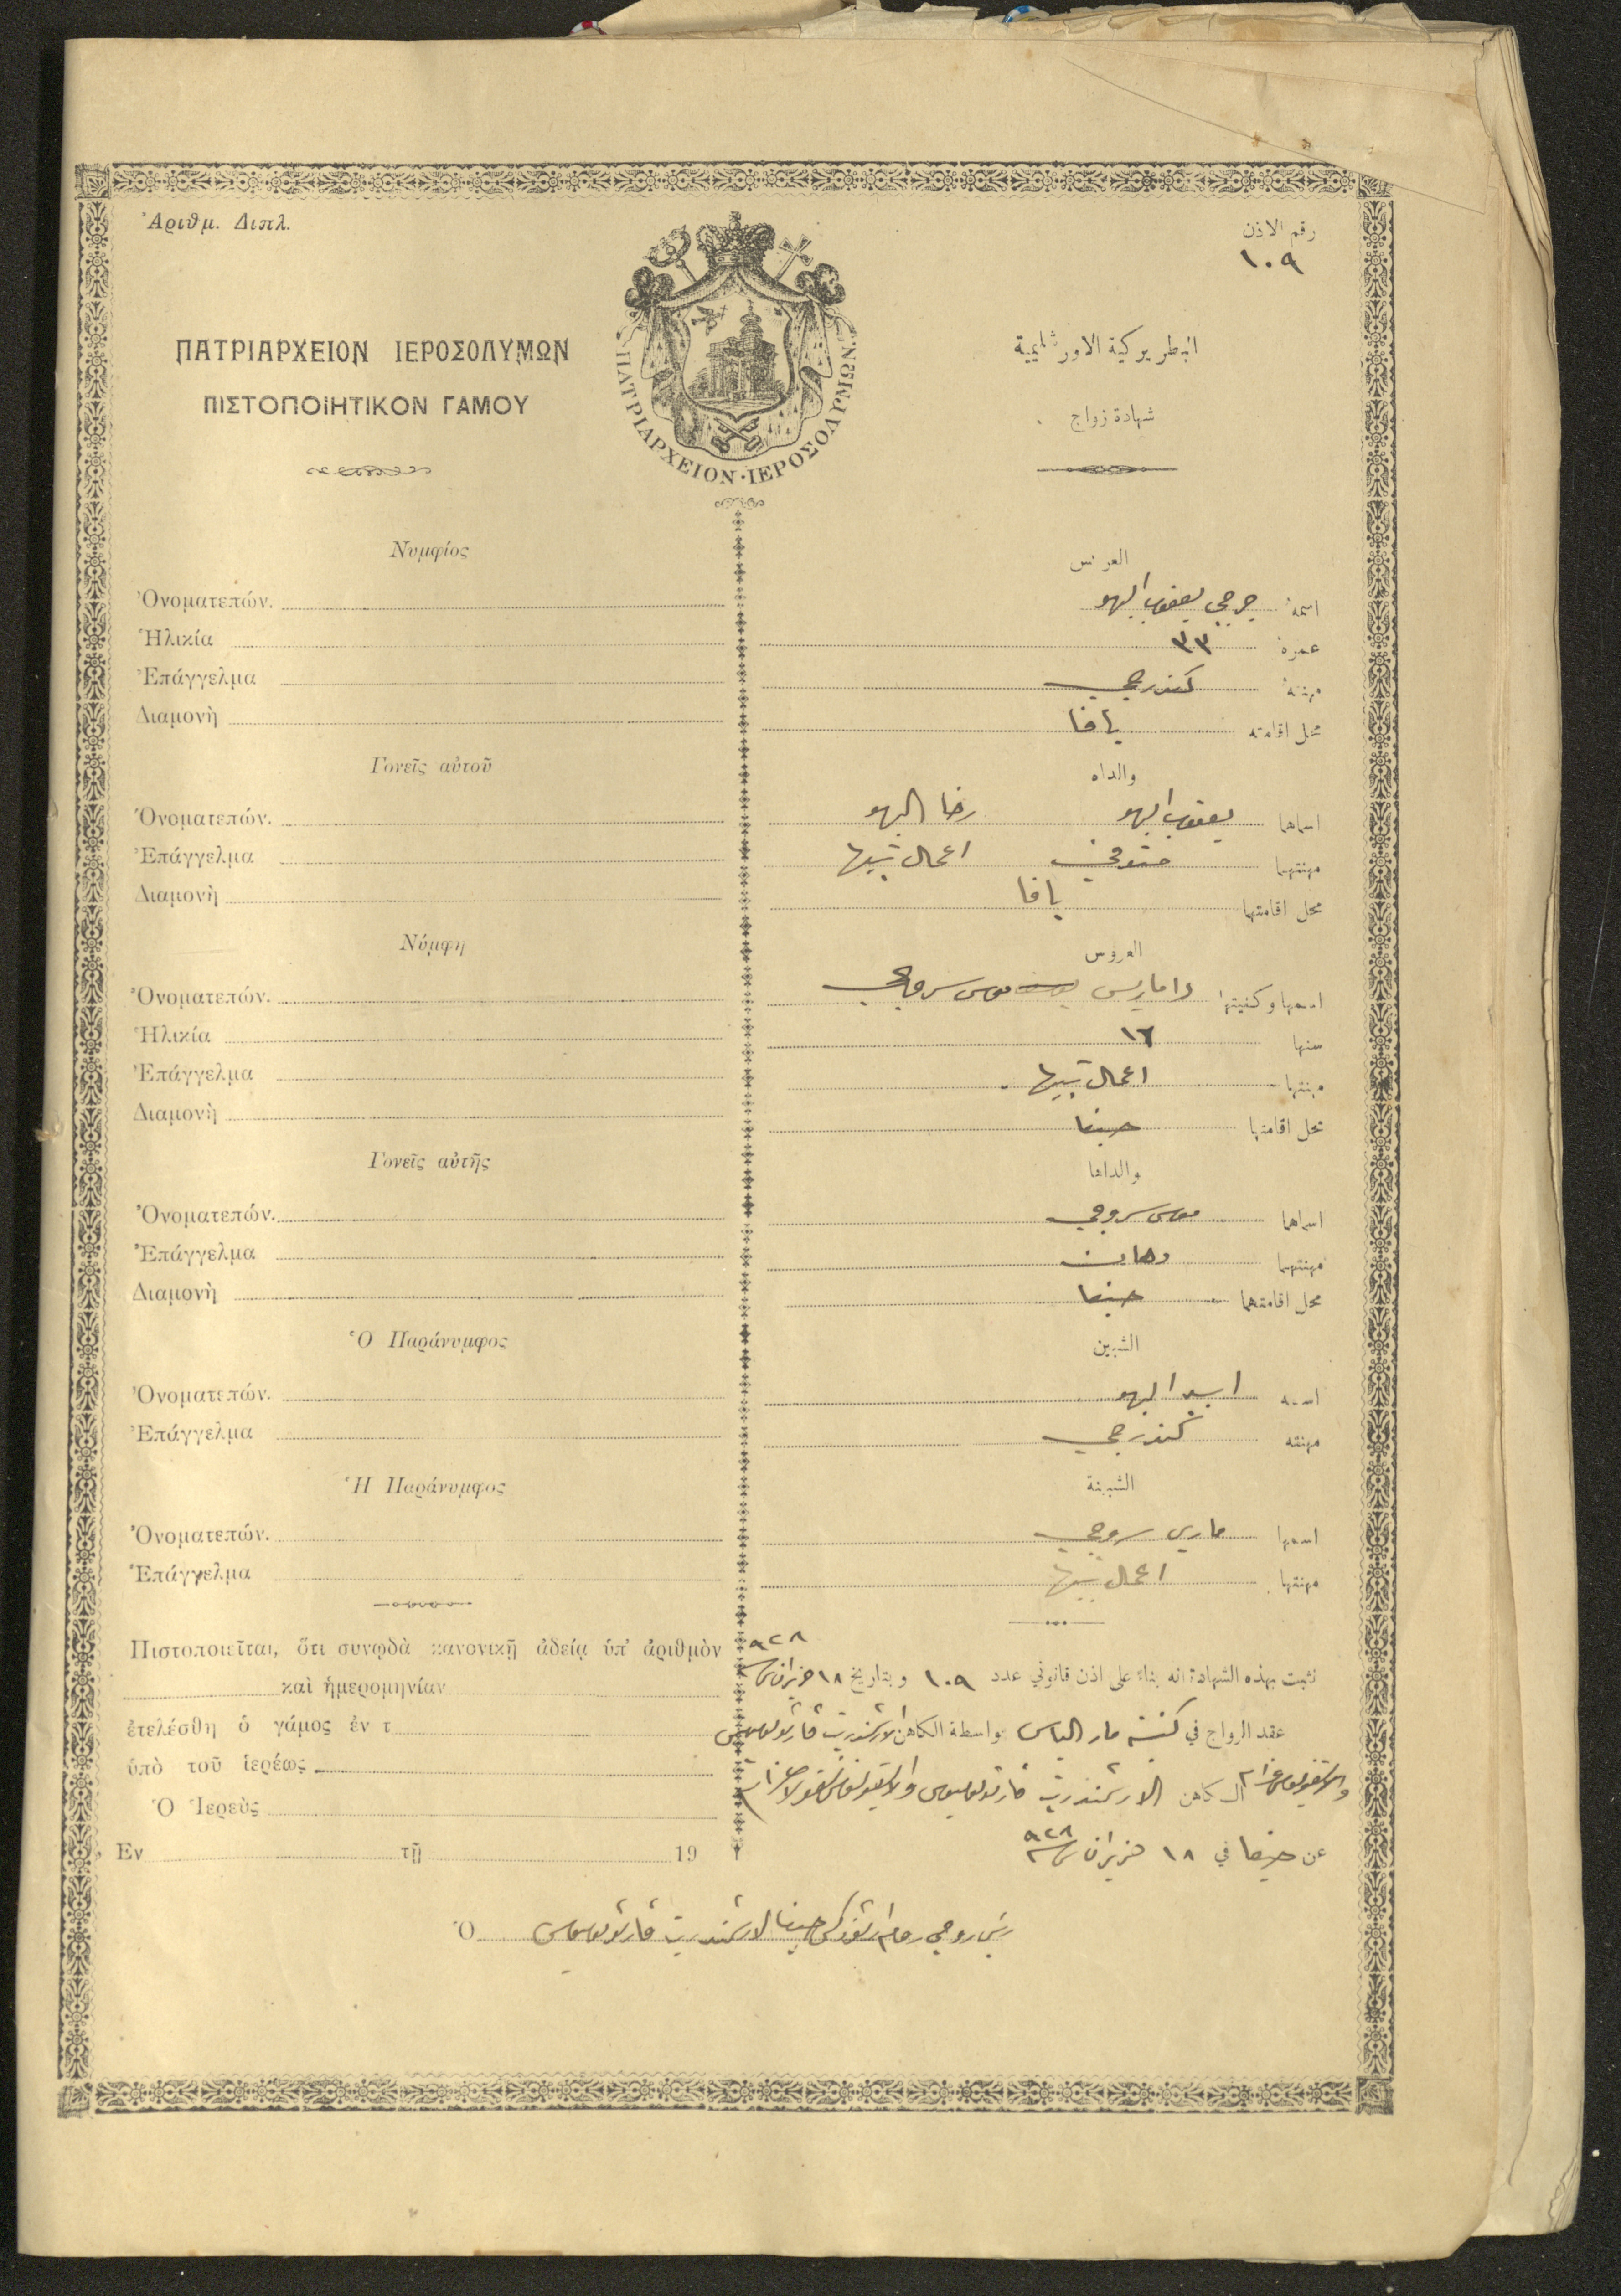 Ἀριθμ. Διπλ.
رقم الاذن
١٠٩
ΠΑΤΡΙΑΡΧΕΙΟΝ ΙΕΡΟΣΟΛΥΜΩΝ
البطريركية الاورشليمية
ΠΙΣΤΟΠΟΙΗΤΙΚΟΝ ΓΑΜΟΥ
شهادة زواج
ΠΑΤΡΙΑΡΧΕΙΟΝ · ΙΕΡΟΣΟΛΥΜΩΝ
Νυμφίος
العريس
Ὀνοματεπών.
اسمه جرجي يعقوب البهو
Ἡλικία
عمره ٣٣
Ἐπάγγελμα
مهنته كندرجي
Διαμονὴ
محل اقامته يافا
Γονεῖς αὐτοῦ
والداه
Ὀνοματεπών.
اسماهما يعقوب البهو رضا البهو
Ἐπάγγελμα
مهنتهما متوفي اعمال بيتها
Διαμονὴ
محل اقامتهما يافا
Νύμφη
العروس
Ὀνοματεπών.
اسمها وكنيتها داماريس موسى سروجي
Ἡλικία
سنها ١٦
Ἐπάγγελμα
مهنتها اعمال بيتها
Διαμονὴ
محل اقامتها حيفا
Γονεῖς αὐτῆς
والداها
Ὀνοματεπών.
اسماهما موسى سروجي
Ἐπάγγελμα
مهنتهما دهان
Διαμονὴ
محل اقامتهما حيفا
Ὁ Παράνυμφος
الشبين
Ὀνοματεπών.
اسمه البهو
Ἐπάγγελμα
مهنته كندرجي
Ἡ Παράνυμφος
الشبينة
Ὀνοματεπών.
اسمها ماري سروجي
Ἐπάγγελμα
مهنتها اعمال بيتها
Πιστοποιεῖται, ὅτι συνῳδὰ κανονικῇ ἀδείᾳ ὑπ' ἀριθμὸν
نثبت بهذه الشهادة انه بناء على اذن قانوني عدد ١٠٩ وبتاريخ ١٨ حزيران سنة ٩٢٨
καὶ ἡμερομηνίαν
ἐτελέσθη ὁ γάμος ἐν τ
عقد الزواج في كنيسة مار الياس بواسطة الكاهن الارشمندريت
ὑπὸ τοῦ ἱερέως
الكاهن الارشمندريت
Ὁ Ἱερεὺς
Ἐν τῇ 19
عن حيفا في ١٨ حزيران سنة ٩٢٨
Ὁ رئيس روحي روم ارثوذكس حيفا الارشمندريت